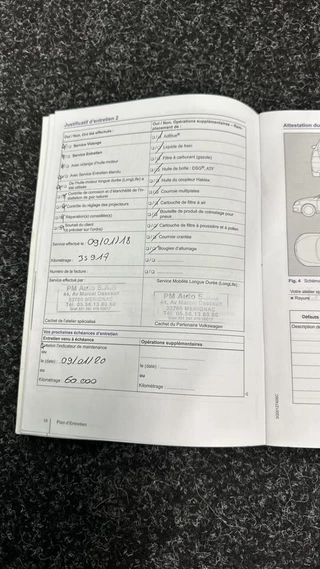 Justificatif d'entretien 2
Oui / Non, Ont été effectués :
Service Vidange
Service Entretien
Avec vidange d'huile moteur
Avec Service Entretien étendu
De l'huile moteur longue durée (LongLife) a été utilisée
Contrôle de corrosion et d'étanchéité de l'installation de gaz naturel
Contrôle du réglage des projecteurs
Réparation(s) conseillée(s)
Souhait du client (à préciser sur l'ordre)
Service effectué le : 09/01/18
Kilométrage : 35917
Numéro de la facture :
Service effectué par :
PM Auto S.A.S
64, Av Marcel Dassault
33700 MERIGNAC
Cachet de l'atelier spécialisé
Oui / Non, Opérations supplémentaires – Remplacement de :
AdBlue®
Liquide de frein
Filtre à carburant (gazole)
Huile de boîte : DSG®, ATF
Huile du coupleur Haldex
Courroie multipistes
Cartouche de filtre à air
Bouteille de produit de colmatage pour pneus
Cartouche de filtre à poussière et à pollen
Courroie crantée
Bougies d'allumage
Service Mobilité Longue Durée (LongLife) :
PM Auto S.A.S
64, Av Marcel Dassault
33700 MERIGNAC
Cachet du Partenaire Volkswagen
Vos prochaines échéances d'entretien
Entretien venu à échéance
Selon l'indicateur de maintenance
ou
le (date) : 09/01/20
ou
Kilométrage : 60 000
Opérations supplémentaires :
le (date) :
ou
Kilométrage :
Plan d'Entretien
Attestation du
Fig. 4
Rayure
Défauts